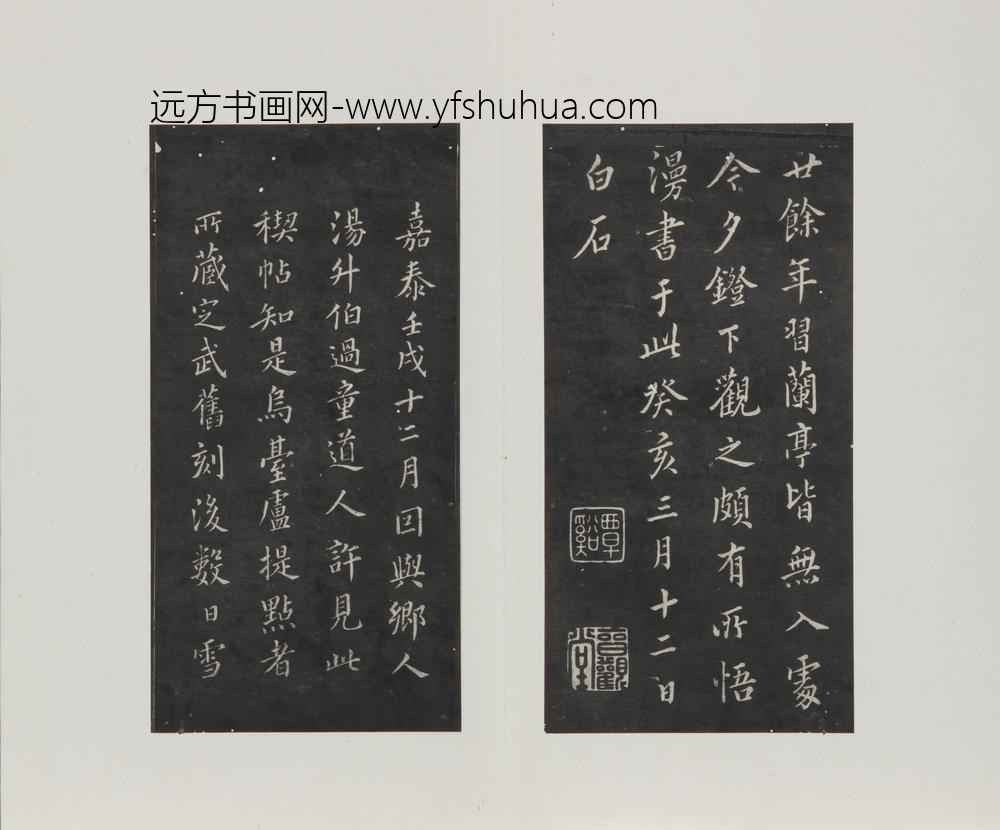 远方书画网-www.yfshuhua.com
廿餘年習蘭亭皆無入處
今夕鐙下觀之頗有所悟
漫書于此癸亥三月十二日
白石
覃谿
晉觀堂
嘉泰壬戌十二月回與鄉人
湯升伯過童道人許見此
稧帖知是烏臺盧提點者
所藏定武舊刻後數日雪